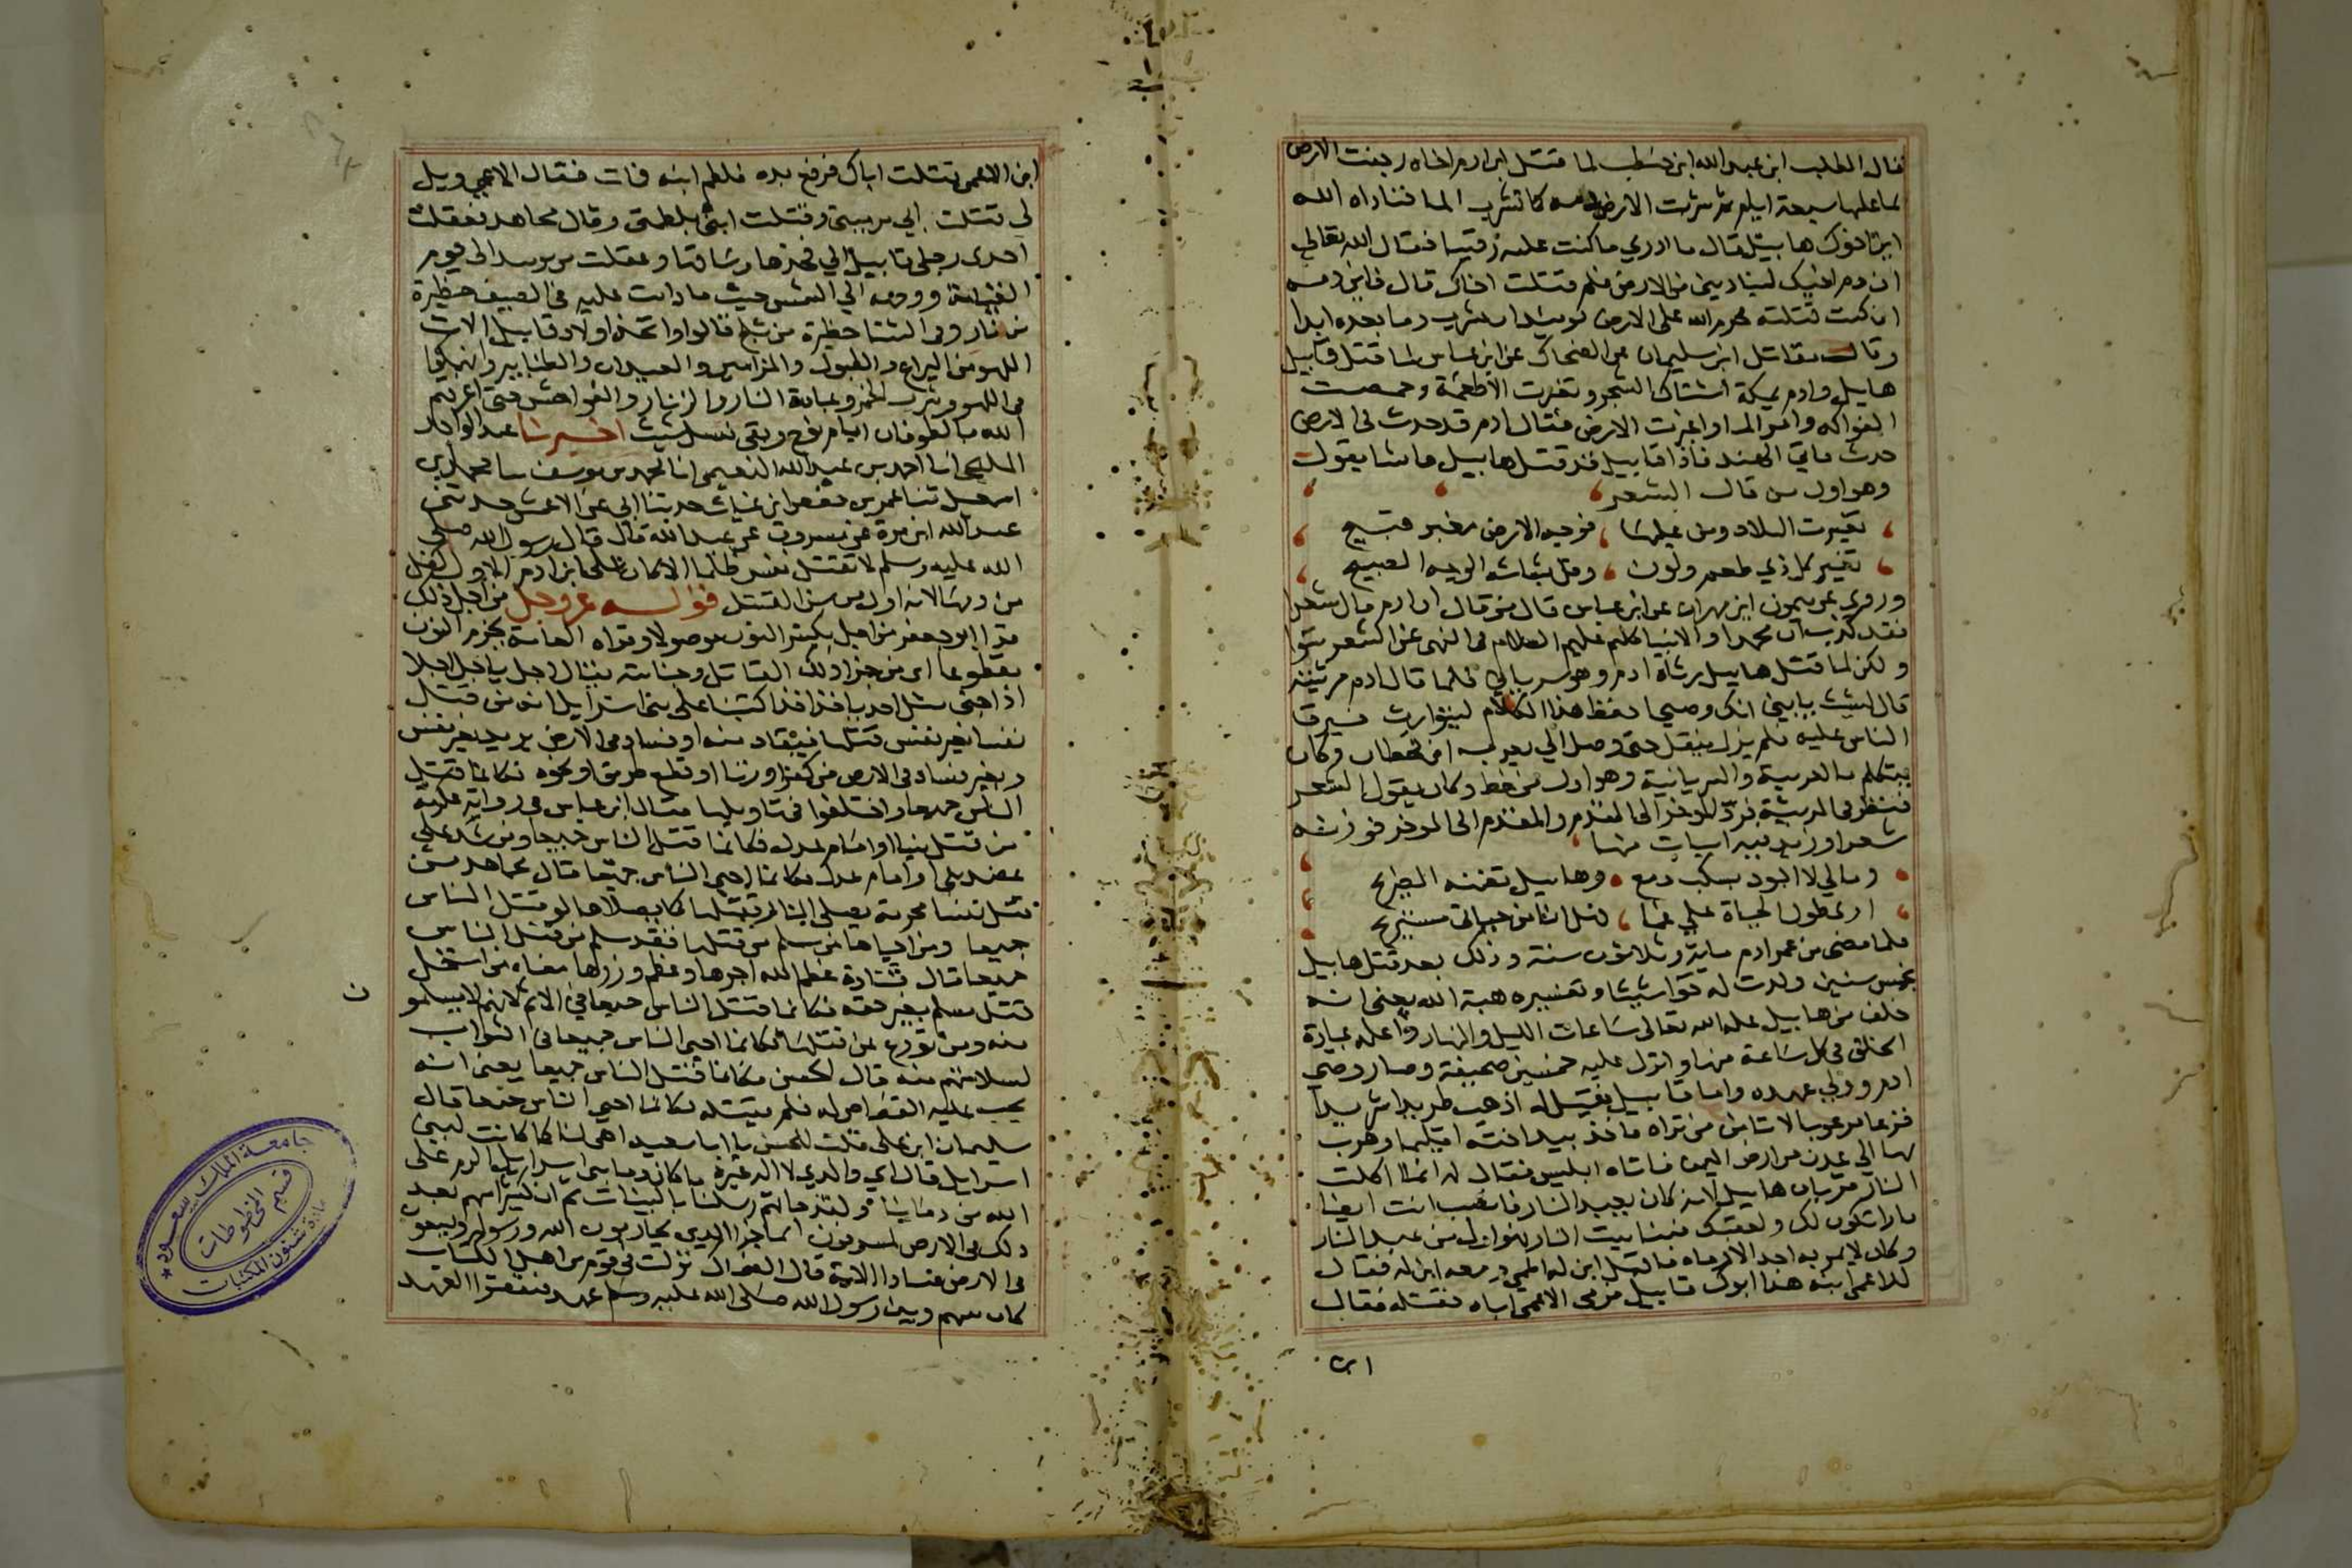 قال المطلب ابن عبد الله ابن حنطب لما قتل ابن ادم اخاه رجفت الارض
بما عليها سبعة ايام ثم شربت الارض دمه كما تشرب الما فناداه الله
اين اخوك هابيل قال ما ادري ما كنت عليه رقيبا فقال الله تعالى
ان دم اخيك ليناديني من الارض فلم قتلت اخاك قال فاين دمه
ان كنت قتلته فحرم الله على الارض يومئذ ان تشرب دما بعده ابدا
وقال مقاتل ابن سليمان عن الضحاك عن ابن عباس لما قتل قابيل
هابيل وادم بمكة اشتاك الشجر وتغيرت الاطعمة وحمضت
الفواكه وامر الما واغبرت الارض فقال ادم قد حدث في الارض
حدث فاتى الهند فاذا قابيل قد قتل هابيل فانشا يقول
وهو اول من قال الشعر
تغيرت البلاد ومن عليها فوجه الارض مغبر قبيح
تغير كل ذي طعم ولون وقل بشاشة الوجه الصبيح
وروي عن ميمون ابن مهران عن ابن عباس قال من قال ان ادم قال شعرا
فقد كذب ان محمدا والانبيا كلهم عليهم السلام في النهي عن الشعر سوا
ولكن لما قتل هابيل رثاه ادم وهو سرياني فلما قال ادم مرثيته
قال لشيث يا بني انك وصيي احفظ هذا الكلام ليتوارث فيرق
الناس عليه فلم يزل ينقل حتى وصل الى يعرب ابن قحطان وكان
يتكلم بالعربية والسريانية وهو اول من خط وكان يقول الشعر
فنظر في المرثية فرد المؤخر الى المقدم والمقدم الى الموخر فوزنه
شعرا وزيد فيه ابيات منها
ومالي لا اجود بسكب دمع وهابيل تضمنه الضريح
ارى طول الحياة علي غما فهل انا من حياتي مستريح
فلما مضى من عمر ادم ماية وثلاثون سنة وذلك بعد قتل هابيل
بخمس سنين ولدت له حوا شيثا وتفسيره هبة الله يعني انه
خلف من هابيل علمه الله تعالى ساعات الليل والنهار واعلمه عبادة
الخلق في كل ساعة منها وانزل عليه خمسين صحيفة وصار وصي
ادم وولي عهده واما قابيل فقيل له اذهب طريدا شريدا
فزعا مرعوبا لا تامن من تراه فاخذ بيد اخته اقليما وهرب
بها الى عدن من ارض اليمن فاتاه ابليس فقال له انما اكلت
النار قربان هابيل لانه كان يعبد النار فانصب انت ايضا
نارا تكون لك ولعقبك فبنا بيت النار فهو اول من عبد النار
وكان لا يمر به احد الا رماه فاقبل ابن له اعمى ومعه ابن له فقال
للاعمى ابنه هذا ابوك قابيل فرمى الاعمى اباه فقتله فقال
ابن الاعمى قتلت اباك فرفع يده فلطم ابنه فات فقال الاعمى ويل
لي قتلت ابي برميتي وقتلت ابني بلطمتي وقال مجاهد فعقلت
احدى رجلي قابيل الى فخذها وساقها وعقلت من يومئذ الى يوم
القيامة ووجهه الى الشمس حيث ما دارت عليه في الصيف حظيرة
من نار وفى الشتا حظيرة من ثلج قالوا واتخذ اولاد قابيل الات
اللهو من اليراع والطبول والمزامير والعيدان والطنابير وانهمكوا
في اللهو وشرب الخمر وعبادة النار والزنا والفواحش حتى اغرقهم
الله بالطوفان ايام نوح وبقي نسل شيث اخبرنا عبد الواحد
المليحي انا احمد بن عبد الله النعيمي انا محمد بن يوسف ثنا محمد بن
اسمعيل ثنا عمر بن حفص ابن غياث حدثنا ابي عن الاعمش حدثني
عبد الله ابن مرة عن مسروق عن عبد الله قال قال رسول الله صلى
الله عليه وسلم لا تقتل نفس ظلما الا كان على ابن ادم الاول كفل
من دمها لانه اول من سن القتل قوله عز وجل من اجل ذلك
قرا ابو جعفر من اجل بكسر النون موصولا وقراه العامة بجزم النون
مقطوعا اى من جزا ذلك القاتل وجنايته يقال اجل ياجل اجلا
اذا جنى مثل اخذ ياخذ اخذا كتبنا على بني اسرائيل انه من قتل
نفسا بغير نفس قتلها فيقاد منه او فساد في الارض يريد بغير نفس
وبغير فساد في الارض من كفر او زنا او قطع طريق او نحوه فكانما قتل
الناس جميعا واختلفوا في تاويلها فقال ابن عباس في رواية عكرمة
من قتل نبيا او امام عدل فكانما قتل الناس جميعا ومن شد على
عضد نبي او امام عدل فكانما احيى الناس جميعا قال مجاهد من
قتل نفسا محرمة يصلى النار بقتلها كما يصلاها لو قتل الناس
جميعا ومن احياها من سلم من قتلها فقد سلم من قتل الناس
جميعا قال قتادة عظم الله اجرها وعظم وزرها معناه من استحل
قتل مسلم بغير حقه فكانما قتل الناس جميعا في الاثم لانهم لا يسلمو ن
منه ومن تورع عن قتلها فكانما احيى الناس جميعا في الثواب
لسلامتهم منه قال الحسن فكانما قتل الناس جميعا يعني انه
يجب عليه القصاص له فلم يقتله فكانما احيى الناس جميعا قال
سليمان ابن على قلت للحسن يا ابا سعيد اهي لنا كما كانت لبني
اسرايل قال اي والذي لا اله غيره ما كان دما بني اسرايل اكرم على
الله من دماينا ولقد جاتهم رسلنا بالبينات ثم ان كثيرا منهم بعد
ذلك في الارض لمسرفون انما جزا الذين يحاربون الله ورسوله ويسعون
في الارض فسادا الاية قال الضحاك نزلت في قوم من اهل الكتاب
كان بينهم وبين رسول الله صلى الله عليه وسلم عهد فنقضوا العهد
جامعة الملك سعود
قسم المخطوطات
عمادة شئون المكتبات